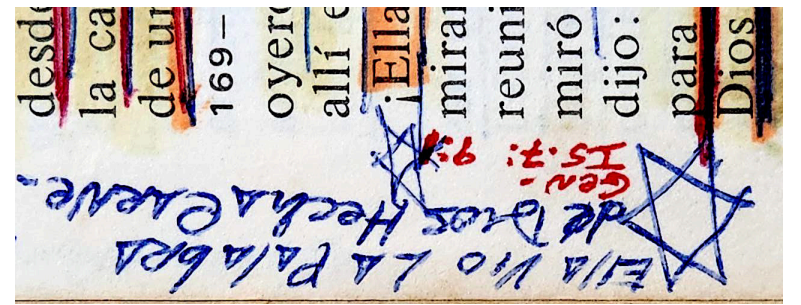 desde
la ca
de un
169–
oyero
allí e
¡Ella
mirar
reuni
miró
dijo:
para
Dios
Ella Vio La Palabra
de Dios Hecha Carne.-
Gen-
IS.7: